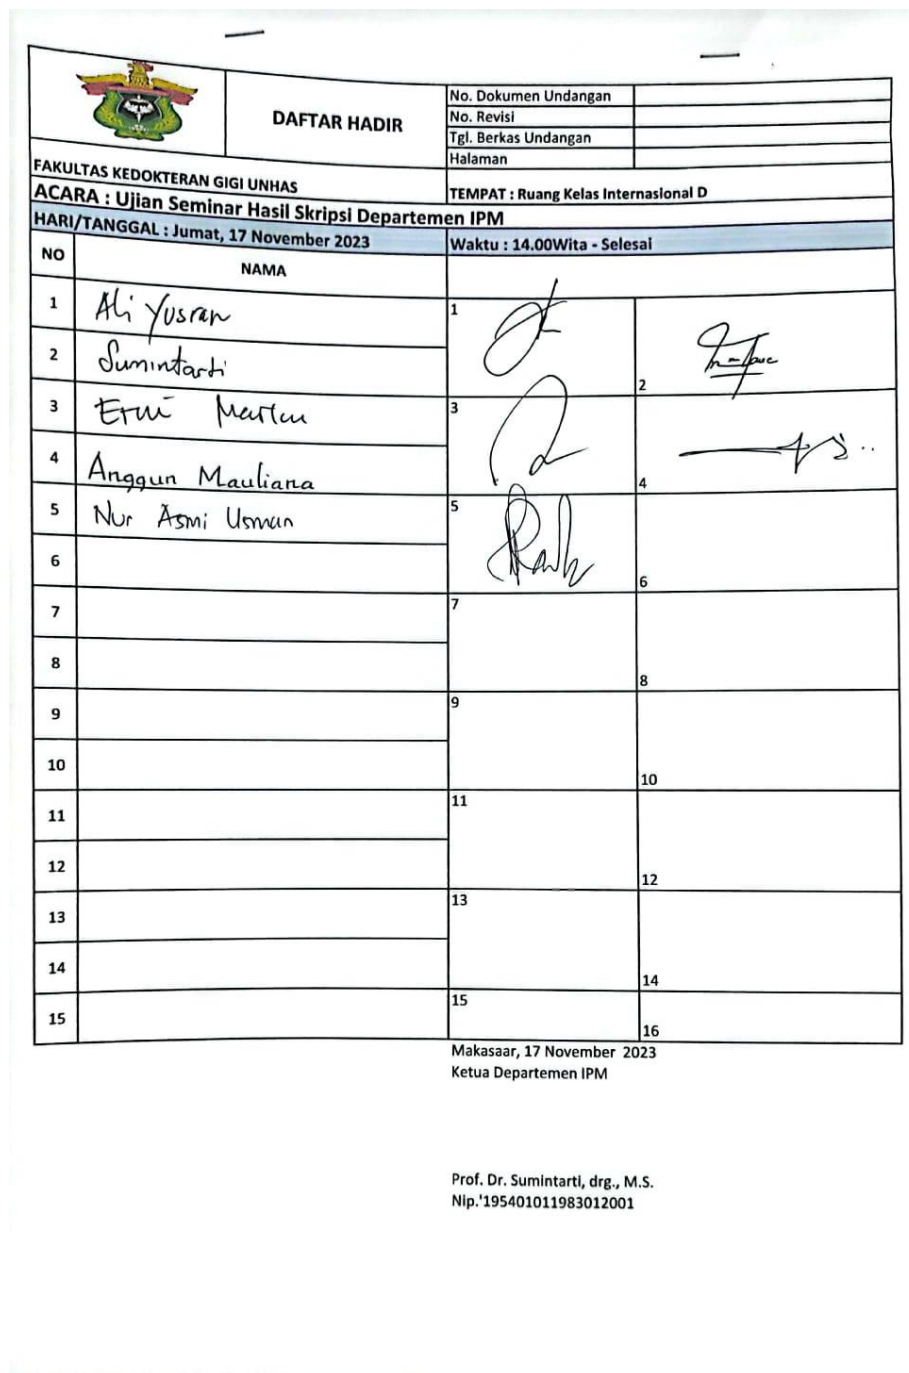 DAFTAR HADIR
No. Dokumen Undangan
No. Revisi
Tgl. Berkas Undangan
Halaman
FAKULTAS KEDOKTERAN GIGI UNHAS
TEMPAT : Ruang Kelas Internasional D
ACARA : Ujian Seminar Hasil Skripsi Departemen IPM
HARI/TANGGAL : Jumat, 17 November 2023
Waktu : 14.00Wita - Selesai
NO
NAMA
1 Ali Yusran 1
2 Sumintarti 2
3 Erni Marlin 3
4 Anggun Mauliana 4
5 Nur Asmi Usman 5
6 6
7 7
8 8
9 9
10 10
11 11
12 12
13 13
14 14
15 15
16
Makasaar, 17 November 2023
Ketua Departemen IPM
Prof. Dr. Sumintarti, drg., M.S.
Nip.'195401011983012001